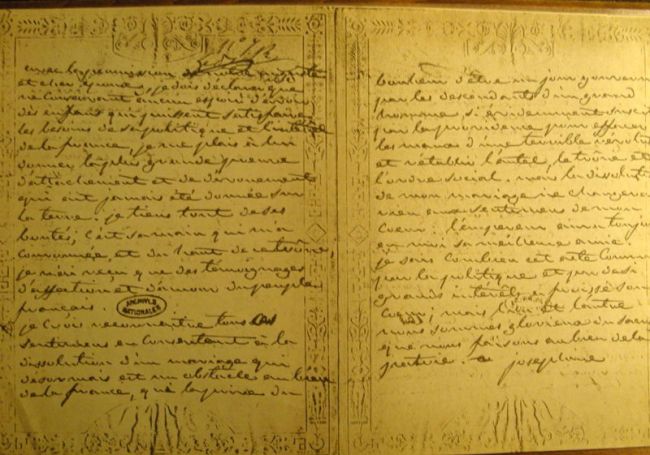 n° 7 B
avec la permission de
et cher époux, je dois declarer que
ne conservant aucun espoir d'avoir
des enfans qui puissent satisfaire
les besoins de sa politique et l'interet
de la france, je me plais à lui
donner la plus grande preuve
d'attachement et de devouement
qui ait jamais été donnée sur
la terre. je tiens tout de ses
bontés; c'est sa main qui m'a
couronnée, et du haut de ce trone,
je n'ai reçu que des temoignages
d'affection et d'amour du peuple
français.
ARCHIVES
NATIONALES
je crois reconnaitre tous ces
sentimens en consentant à la
dissolution d'un mariage qui
desormais est un obstacle au bien
de la france, qui la prive du
bonheur d'être un jour gouvernée
par les descendants d'un grand
homme si évidemment suscité
par la providence pour effacer
les maux d'une terrible revolution
et rétablir l'autel, le trone et
l'ordre social. mais la dissolution
de mon mariage ne changera
rien aux sentimens de mon
coeur: l'empereur aura toujours
en moi sa meilleure amie.
je sais combien cet acte commandé
par la politique et par de si
grands intérets a froissé son
coeur; mais l'un et l'autre
nous sommes glorieux du sacrifice
que nous faisons au bien de la
patrie.
josephine